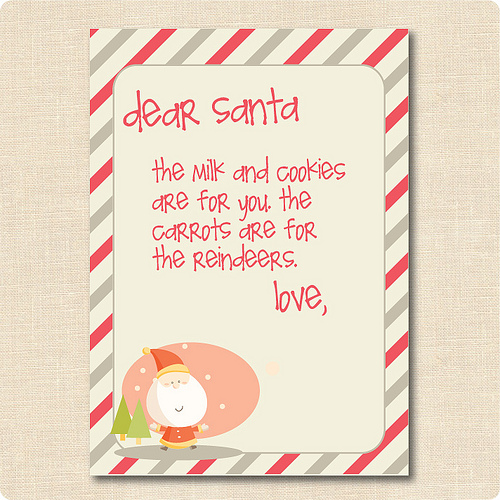 dear santa
the milk and cookies
are for you. the
carrots are for
the reindeers.
love,